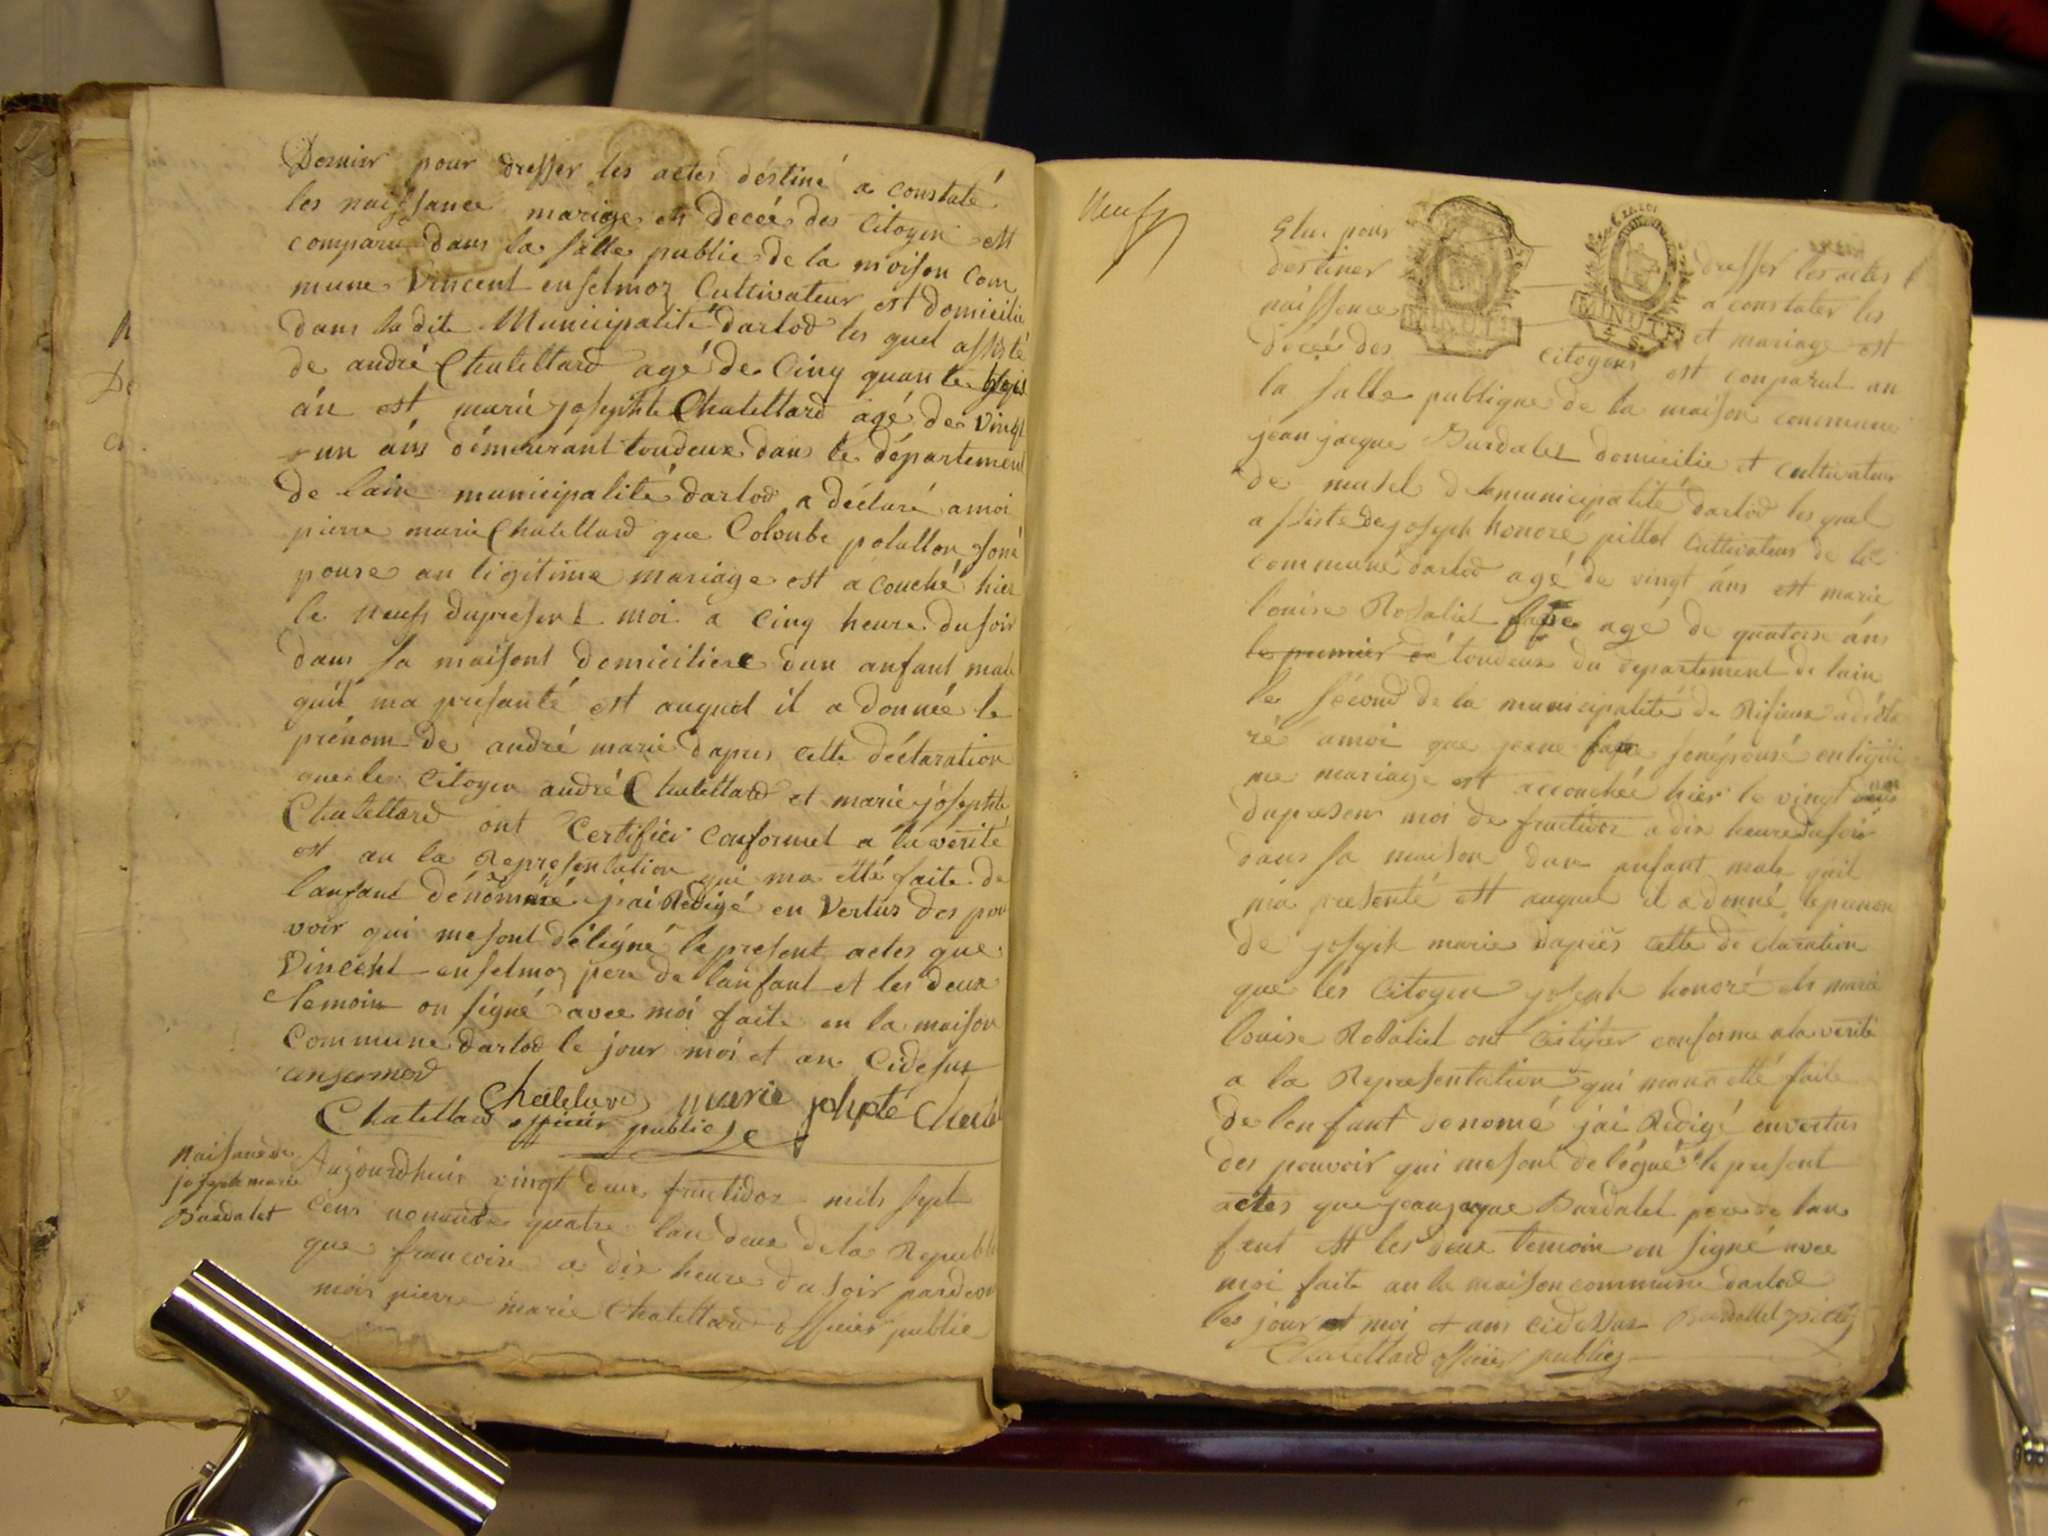 Dernier pour dresser les actes destiné a constaté
les naissance mariage et decée des Citoyen est
comparu dans la salle public de la moison com
mune Vincent enselmoz Cultivateur est domicilié
dans ladite Municipalité darlod les quel assisté
de andré Chatellard agé de Cinq quante
án est marie josephte Chatellard agé de vingt
un áns démeurant toudeux dans le département
de lain municipalité darlod a déclaré amoi
pierre marie Chatellard que Colonbe polallon soné
pouse an légitime mariage est acouché hier
le neufs dupresent moi a Cinq heure du soir
dans sa maisont domiciliere dun anfant male
quil ma presanté est auquel il a donnée le
prénom de andré marie dapres cette déclaration
que les Citoyen andré Chatellard et marie josephte
Chatellard ont Certifier conformet a la verité
est au la Representation qui ma etté faite de
lanfant dénommé jai Rédigé en Vertus des pou
voir qui mesont délégné le present actes que
Vincent enselmoz pere de lanfant et les deux
temoin on signé avec moi faite en la maison
Commune darlod le jour moi et an Cidesus
ensermod
Chatelard marie josheté Chatel
Chatellard officier public
Naisance de
joseph marie
Burdalet
Aujourdhuis vingt deux fructidor mils sept
Cens nonante quatre lan deux de la Republi
que francoise a dix heure du soir pardevan
moi pierre marie Chatellard officier public
Neuf
Elue pour dresser les actes
destiner a constater les
naissance et mariage est
décée des Citoyens est conparut an
MINUTE
MINUTE
la salle publique de la maison commune
jean jacque Burdalet domicilie et cultivateur
de musel de la municipalité darlod les quel
assiste de joseph honoré pillot Cultivateur de la
commune darlod agé de vingt áns est marie
louise Rosaliet agé de quatorse áns
le premier dé toudeux du departement de lain
le sécond de la municipalité de a décla
ré amoi que sonépouse en ligiti
me mariage est accouchée hier le vingt
dupresen moi de fructidor a dix heure du soir
dans sa maison dun anfant male quil
ma presenté est auquel il a donné le prenon
de joseph marie daprès cette declaration
que les Citoyen joseph honoré et marie
louise Rosaliet ont Certifier conforme a la verité
a la Representation qui maux etté faite
de lenfant denomé jai Redigé en vertus
des pouvoir qui mesont delégué le present
actes que jeanjaque Burdalet pere de lan
fent est les deux temoin on signé avec
moi faite an la maison commune darlod
les jour et moi et ans cidessus Burdallet pillot
Chatellard officier public